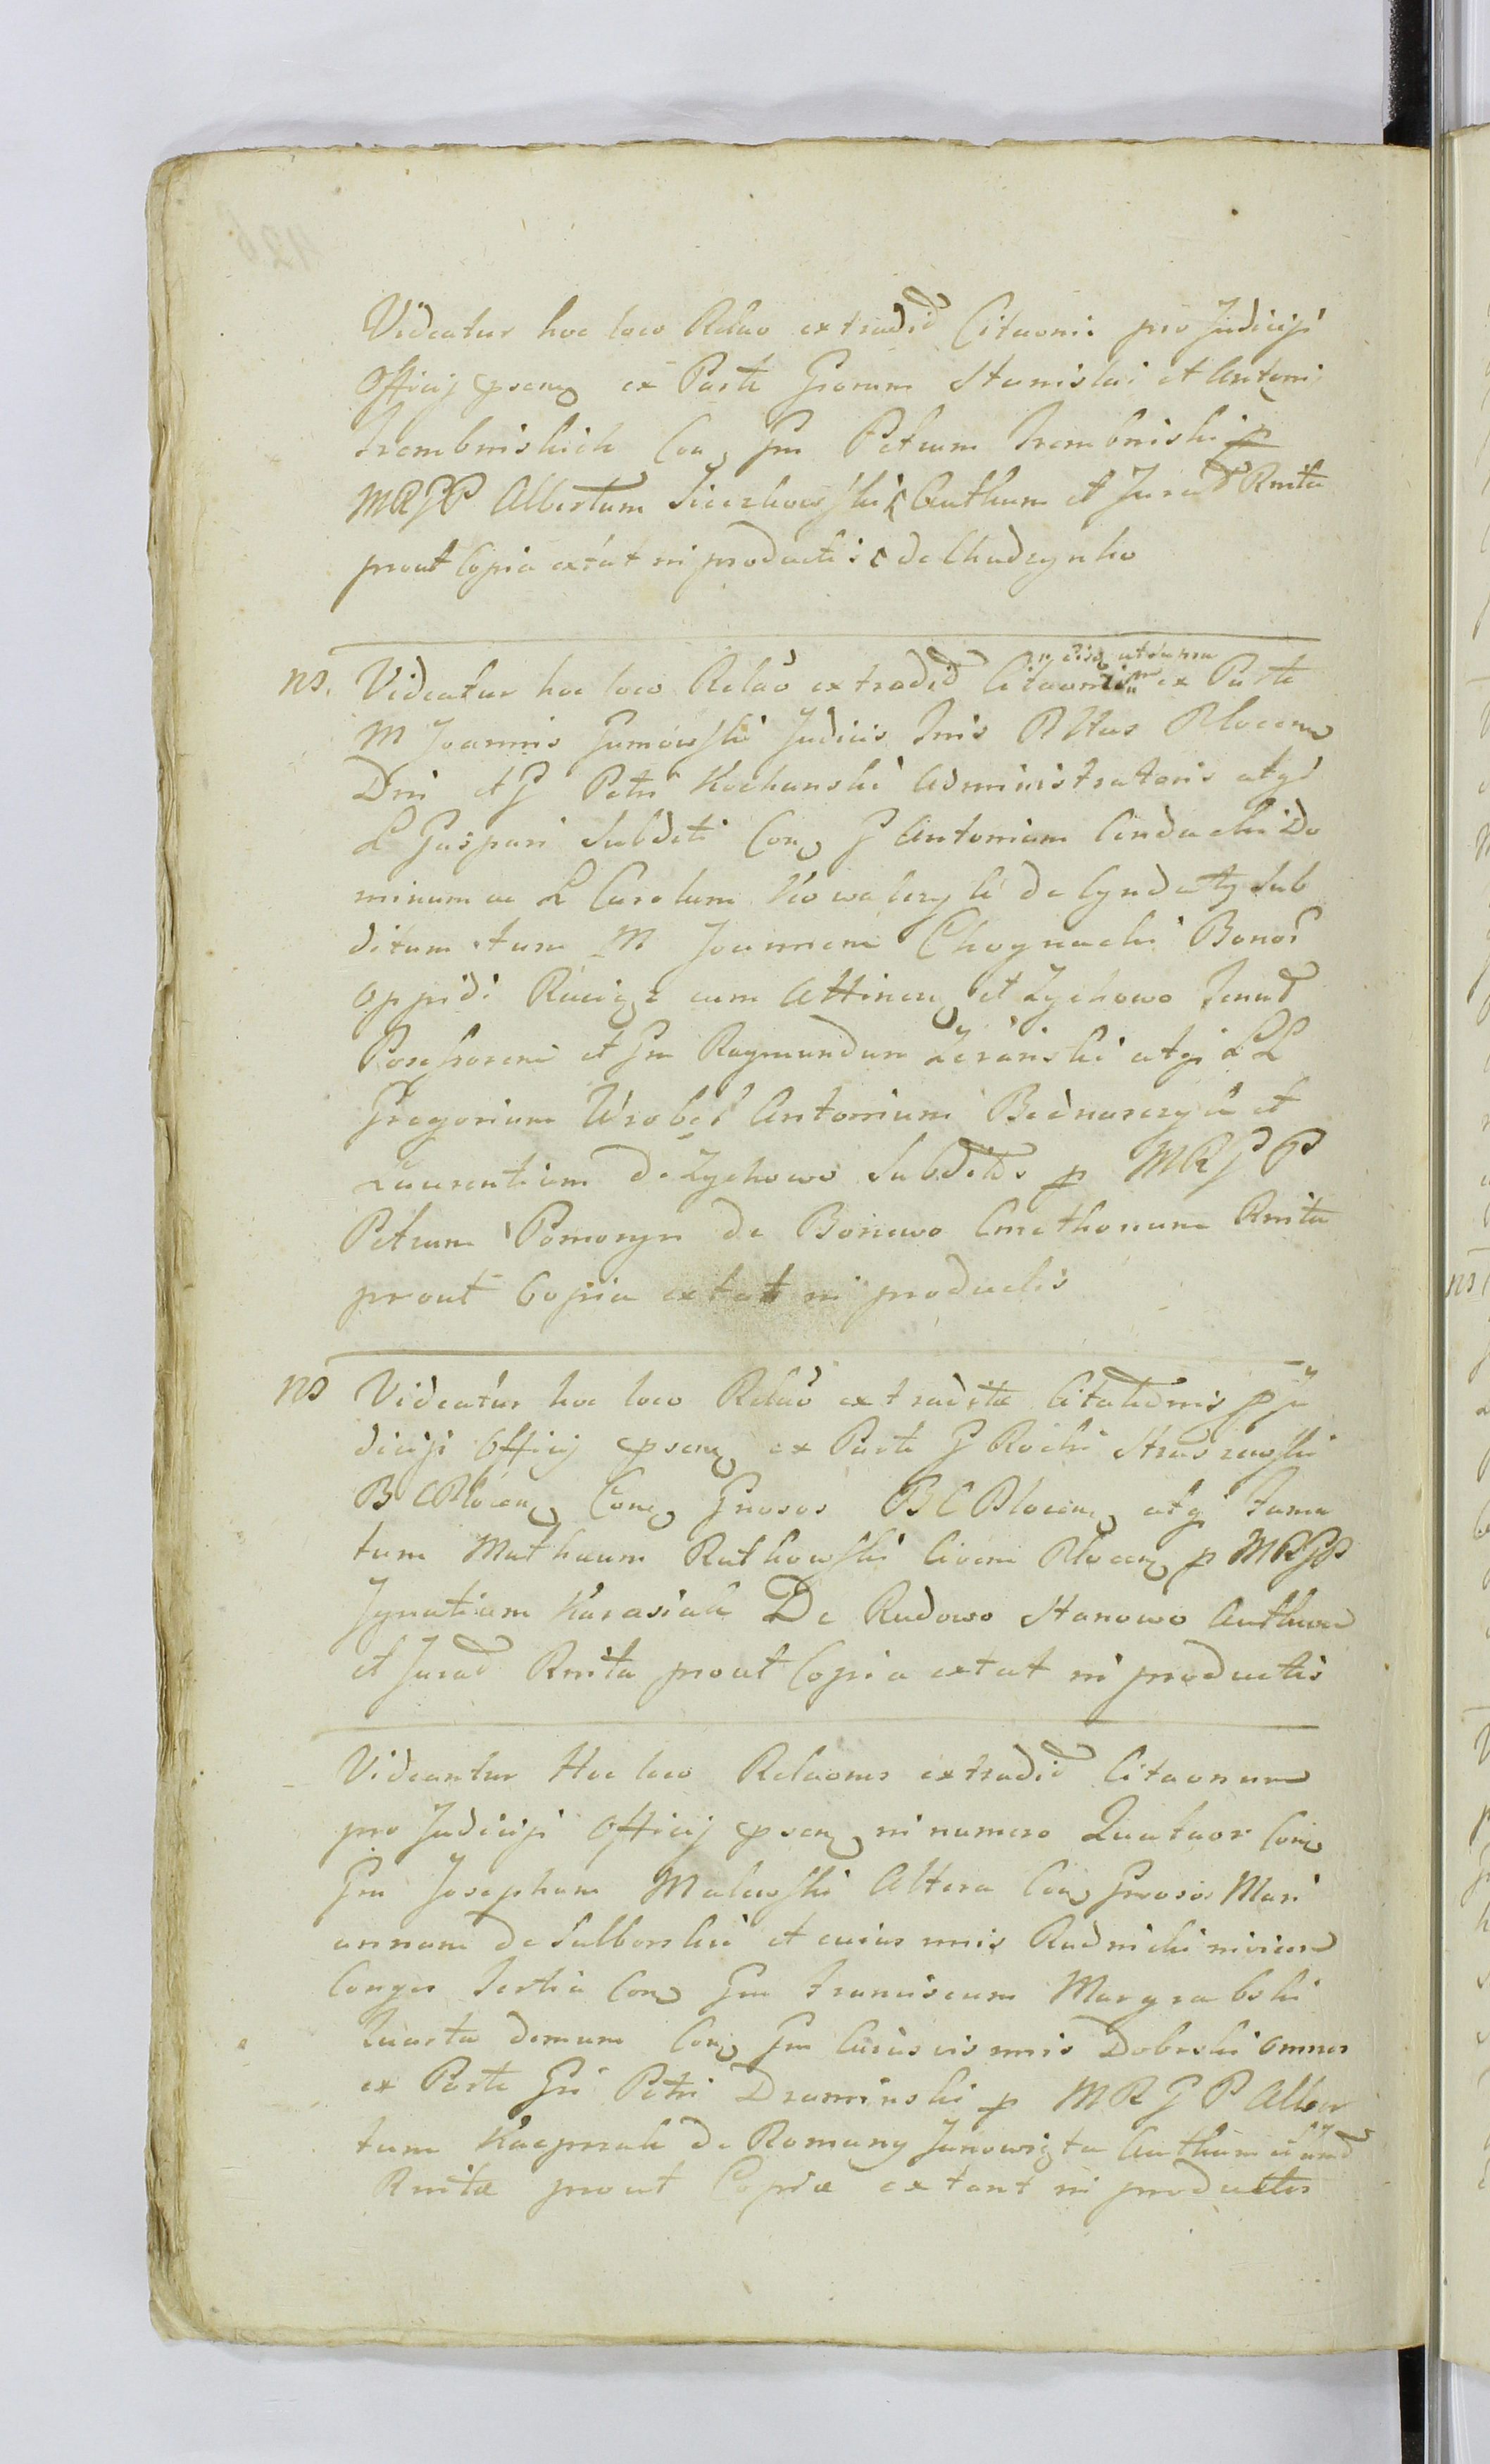 Videatur hoc loco Relao extradit Citaonis pro Judicijs
Officij psen ex Parte Grorum Stanislai et Antoni
Trembniskich Con Gm Petrum Trembniski p
MRGP Albertum Sieczkowski Authum et Jurat Rnita
prout Copia extat in productis de Chudzynko
ns. Videatur hoc loco Relao extradit Citaonis ut supra ex Parte
M Joannis Gumowski Judicis Tnis Pltus Plocens
Dni et G Petri Kochanski Administratoris atq
L Gaspari Subditi Con G Antonium Cindacki Do
minum ac L Carolum Kowalczyk de Cyndaty Sub
ditum tum M Joannem Choynacki Bonor
oppidi Raciąz cum Attinen et Zychowo Tenut
Possessorem et Gm Raymundum Zeranski atq LL
Gregorium Wrobel Antonium Bednarczyk et
Laurentium de Zychowo Subditos p MRGP
Petrum Pomorzyn de Boniewo Cmethonum Rnita
prout Copia extat in productis
ns Videatur hoc loco Relao extraditæ Citationis p Ju
dicijs Officij psen ex Parte G Rochi Straszewski
BCPlocen Con Gnosos BCPlocen atq Fama
tum Mathæum Rutkowski Civem Plocen p MRGP
Ignatium Karasiak De Rudowo Stanowo Authum
et Jurat Rnita prout Copia extat in productis
Videantur Hoc loco Relaones extradit Citaonum
pro Judicijs Officij psen in numero Quatuor Con
Gm Josephum Malewski Altera Con Gnosos Mari
annam de Sulborskie et cuius nnis Rudnicki invicem
Conges Tertia Con Gm Franciscum Margrabski
Quarta demum Con Gm Cuiusvis nnis Dobrski omnes
ex Parte Gri Petri Draminski p MRGP Alber
tum Kacprzak de Romany Janowięta Authum et Jurat
Rnitæ prout Copiæ extant in productis